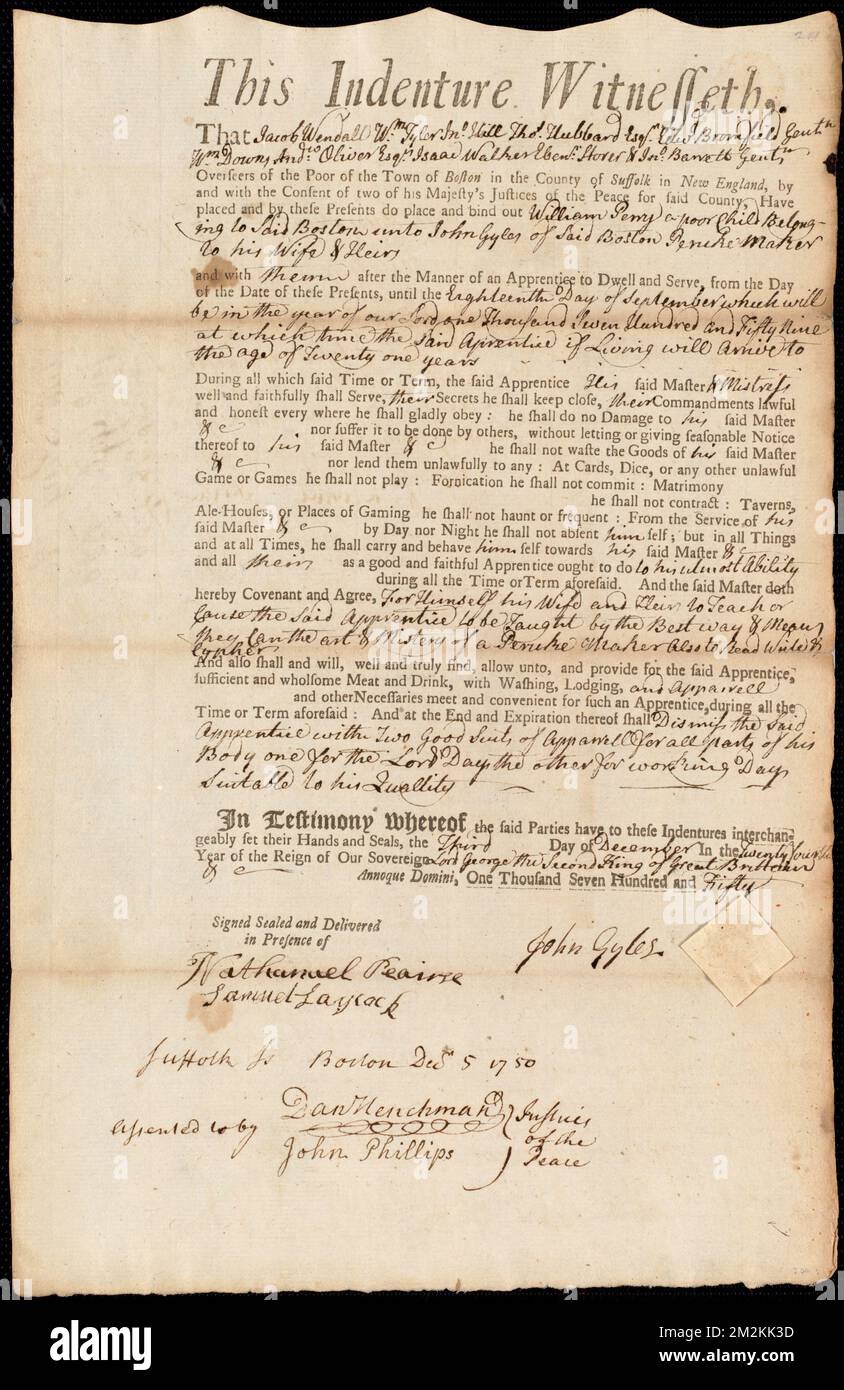 This Indenture Witnesseth,
That Jacob Wendall Wm Tyler Jno Hill Thos Hubbard Esqrs Edwd Bromfield Gentn
Wm Downs Andw Oliver Esqrs Isaac Walker Ebenr Storer & Jno Barrett Gentn
Overseers of the Poor of the Town of Boston in the County of Suffolk in New England, by
and with the Consent of two of his Majesty's Justices of the Peace for said County, Have
placed and by these Presents do place and bind out William Perry a poor Child Belong-
ing to Said Boston unto John Gyles of Said Boston Peruke Maker
to his Wife & Heirs
and with them after the Manner of an Apprentice to Dwell and Serve, from the Day
of the Date of these Presents, until the Eighteenth Day of September which will
be in the year of our Lord one Thousand Seven Hundred and Fifty Nine
at which time the Said Aprentice if Living will Arrive to
the age of Twenty one years
During all which said Time or Term, the said Apprentice His said Master & Mistress
well and faithfully shall Serve, their Secrets he shall keep close, their Commandments lawful
and honest every where he shall gladly obey: he shall do no Damage to his said Master
& c nor suffer it to be done by others, without letting or giving seasonable Notice
thereof to his said Master & c he shall not waste the Goods of his said Master
& c nor lend them unlawfully to any: At Cards, Dice, or any other unlawful
Game or Games he shall not play: Fornication he shall not commit: Matrimony
he shall not contract: Taverns,
Ale-Houses, or Places of Gaming he shall not haunt or frequent: From the Service of his
said Master & c by Day nor Night he shall not absent him self; but in all Things
and at all Times, he shall carry and behave him self towards his said Master & c
and all theirs as a good and faithful Apprentice ought to do to his utmost Ability
during all the Time or Term aforesaid. And the said Master doth
hereby Covenant and Agree, For Himself his Wife and Heir to Teach or
Cause the Said Apprentice to be Taught by the Best way & Means
they Can the art & Mistery of a Peruke Maker also to Read Write &
Cypher
And also shall and will, well and truly find, allow unto, and provide for the said Apprentice,
sufficient and wholsome Meat and Drink, with Washing, Lodging, and Apparrell
and other Necessaries meet and convenient for such an Apprentice, during all the
Time or Term aforesaid: And at the End and Expiration thereof shall Dismiss the Said
Apprentice with Two Good Suits of Apparrell for all parts of his
Body one for the Lords Days the other for working Days
Suitable to his Quallity
In Testimony whereof the said Parties have to these Indentures interchan-
geably set their Hands and Seals, the Third Day of December In the Twenty fourth
Year of the Reign of Our Sovereign Lord George the Second King of Great Brittain
& c Annoque Domini, One Thousand Seven Hundred and Fifty
Signed Sealed and Delivered
in Presence of
John Gyles
Nathanuel Pearse
Samuel Laycock
Suffolk Ss Boston Decr 5 1750
assented to by
Dan Henchman
John Phillips
Justices
of the
Peace
alamy
alamy
Image ID: 2M2KK3D
www.alamy.com